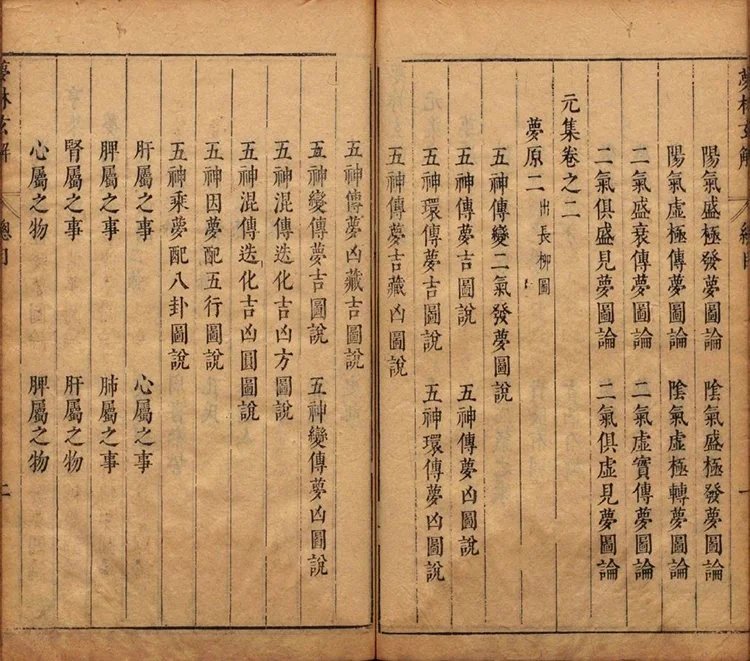 夢林玄解 總目 一
陽氣盛極發夢圖論 陰氣盛極發夢圖論
陽氣虛極傳夢圖論 陰氣虛極轉夢圖論
二氣盛衰傳夢圖論 二氣虛實傳夢圖論
二氣俱盛見夢圖論 二氣俱虛見夢圖論
元集卷之二
夢原二 出長柳圖
五神傳變二氣發夢圖說
五神傳夢吉圖說 五神傳夢凶圖說
五神環傳夢吉圖說 五神環傳夢凶圖說
五神傳夢吉藏凶圖說
五神傳夢凶藏吉圖說
五神變傳夢吉圖說 五神變傳夢凶圖說
五神混傳迭化吉凶方圖說
五神混傳迭化吉凶圓圖說
五神因夢配五行圖說
五神乘夢配八卦圖說
肝屬之事 心屬之事
脾屬之事 肺屬之事
腎屬之事 肝屬之物
心屬之物 脾屬之物
夢林玄解 總目 二